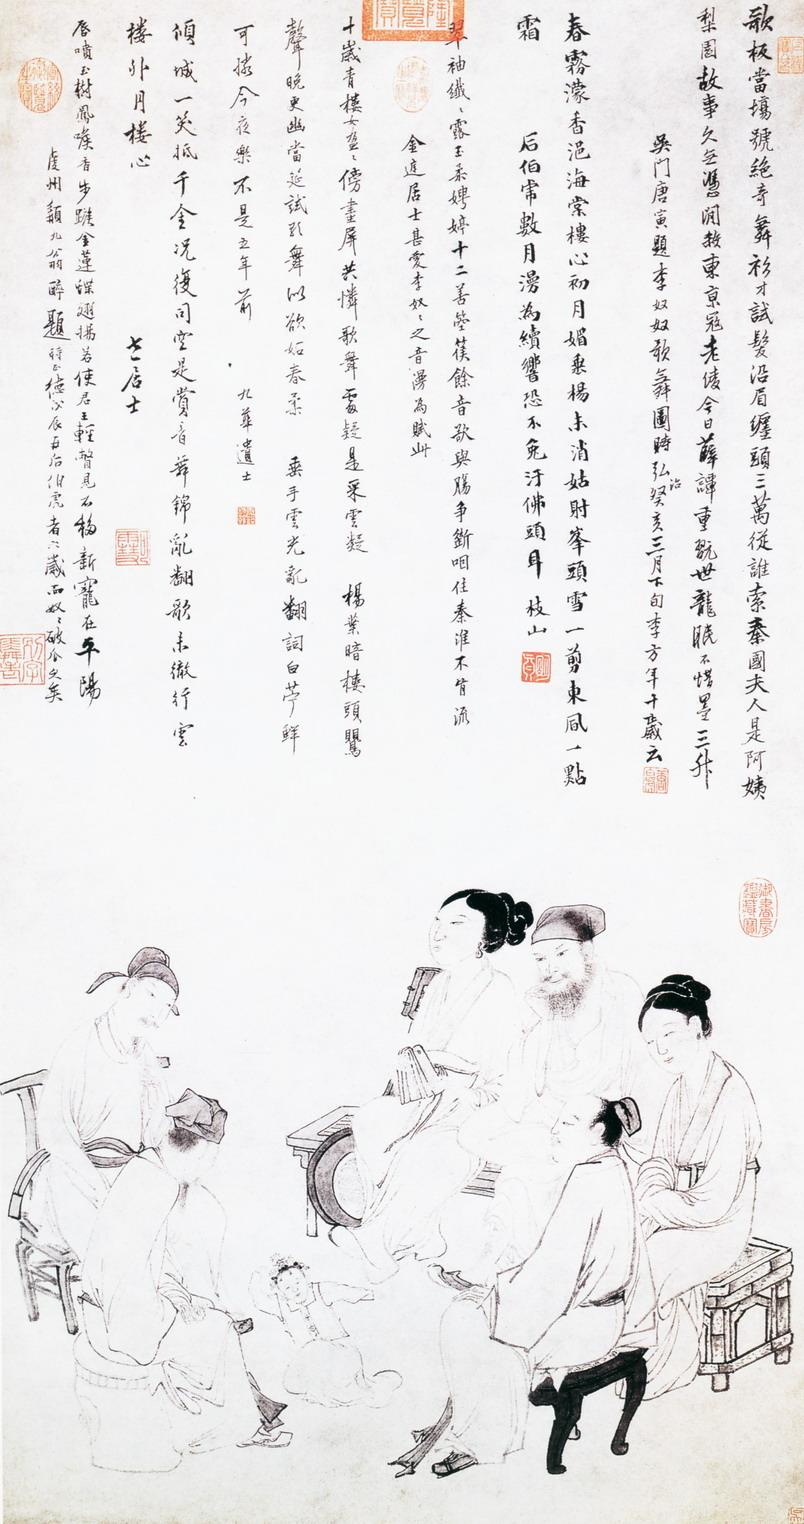 歌板當場號絕奇舞衫才試髮沿眉纏頭三萬從誰索秦國夫人是阿姨
梨園故事久無憑聞教東京冠老陵今日薛譚重絕世龍眠不惜墨三升
吳門唐寅題李奴奴歌舞圖時弘治癸亥三月下旬李方年十歲云
春霧濛香浥海棠樓心初月媚垂楊未消姑射峯頭雪一剪東風一點
霜
后伯常數月漫為續響恐不免汙佛頭耳 枝山
翠袖纖纖露玉柔娉婷十二善箜篌餘音欲與腸爭斷咽住秦淮不肯流
金庭居士甚愛李奴奴之音漫為賦此
十歲青樓女盈盈傍畫屏共憐歌舞處疑是采雲凝 楊葉暗樓頭鶯
聲晚更幽當延試歌舞似欲妬春柔 垂手雲光亂翻詞白苧鮮
可憐今夜樂不是五年前
九華遺士
傾城一笑抵千金況復司空是賞音舞錦亂翻歌未徹行雲
樓外月樓心
居士
唇噴玉樹鳳喉香步蹴金蓮蝶翅揚若使君王輕瞥見不移新寵在平陽
虔州 九翁醉題時正德戊辰五后伯虎者六歲而奴奴破瓜久矣